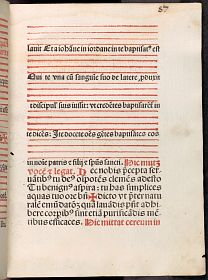 87
lauit Et a iohāne in iordane in te baptisat⁹ est
Qui te vna cū sanguīe suo de latere
discipul suis iussit: vt credētes baptisarēt in
te dicēs: Ite docete oēs gētes baptisātes eos
in noīe patris ⁊ filij ⁊ spūs sancti. Hic mutꝫ
vocē ⁊ legat. Hec nobis p̄cepta ser
uātib⁹ tu de⁹ oīpotēs clemēs adesto
Tu benign⁹ aspira: tu has simplices
aquas tuo ore bn̄dicito vt pter natu
ralē emūdationē quā lauādis pn̄t adhi
bere corpib⁹ sint etiā purificādis mē
tibus efficaces. Hic mittat cereum in